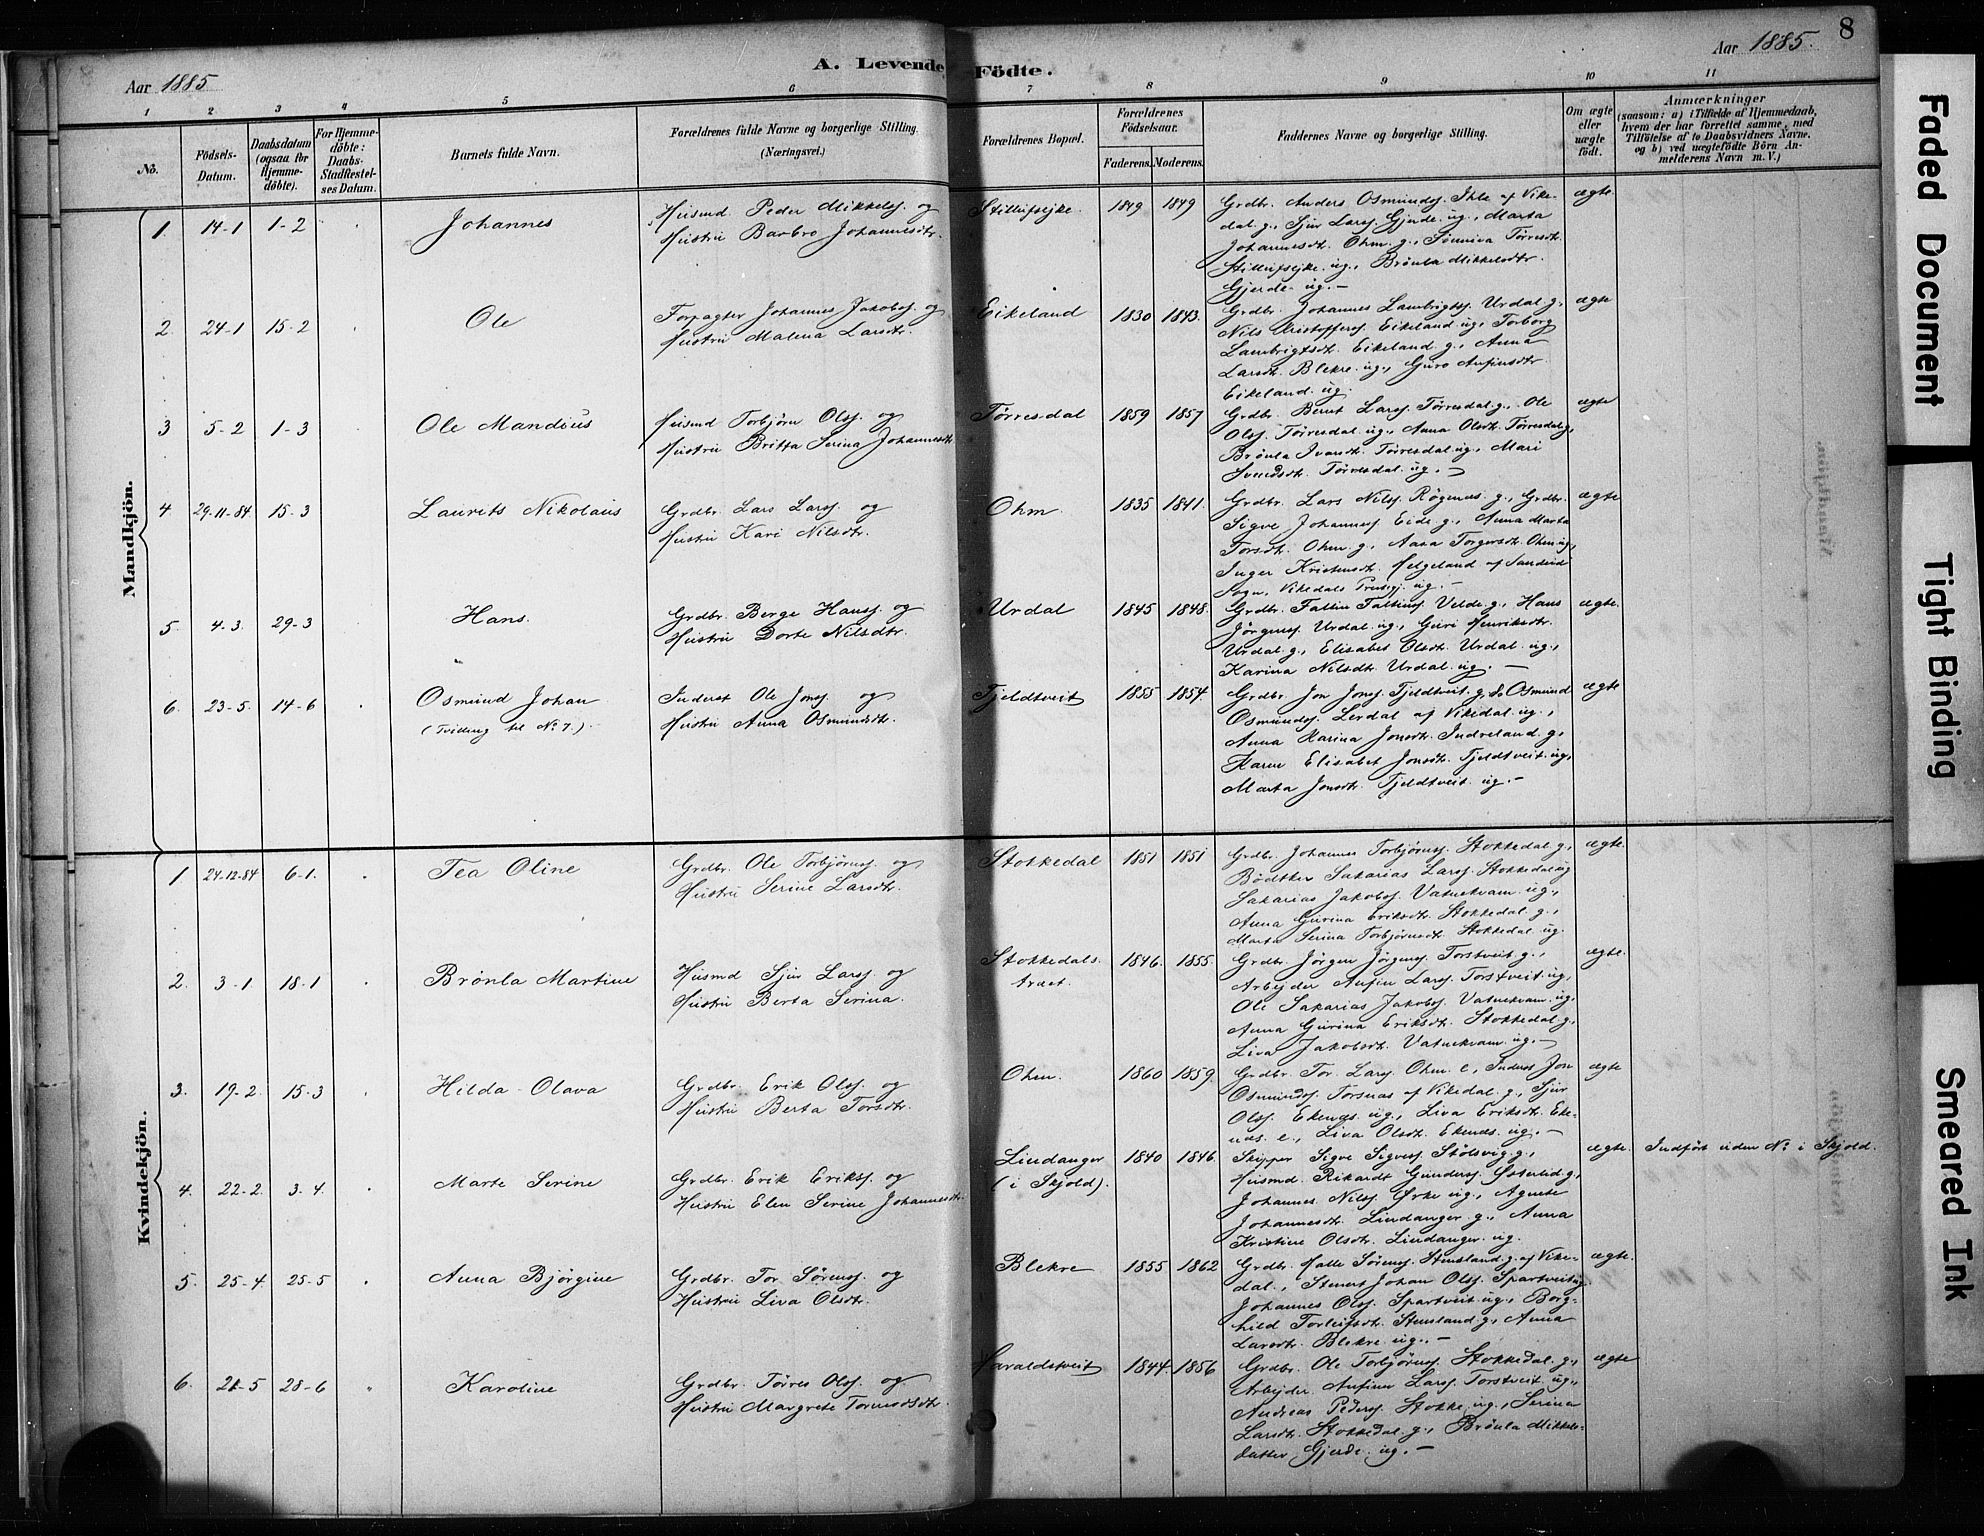 8
Aar 1885
A. Levende Födte.
Aar 1885.
1 2 3 4 5 6 7 8 9 10 11
No.
Födsels-
Datum.
Daabsdatum
(ogsaa for
Hjemme-
döbte).
For Hjemme-
döbte:
Daabs-
Stadfestel-
ses Datum.
Barnets fulde Navn.
Forældrenes fulde Navne og borgerlige Stilling.
(Næringsvei.)
Forældrenes Bopæl.
Forældrenes
Födselsaar.
Faderens. Moderens.
Faddernes Navne og borgerlige Stilling.
Om ægte
eller
uægte
födt.
Anmærkninger
(saasom: a) i Tilfælde af Hjemmedaab,
hvem der har forrettet samme, med
Tilföielse af to Daabsvidners Navne,
og b) ved uægtefödte Börn An-
melderens Navn m. V.)
Mandkjön.
1. 14-1 1-2 Johannes
Husmd Peder Mikkels. og
Hustru Barbro Johannesdtr.
1849 1849
Grdbr. Anders Osmunds. Ihle af Vike-
dal g., Sjur Lars. Gjerde ug., Marta
Johannesdt. Ohm. g., Sønniva Tørresdt.
ug., Brønla Mikkelsdtr.
Gjerde ug. —
ægte.
2 24-1 15-2 Ole
Forpagter Johannes Jakobs. og
Hustru Malena Larsdtr.
Eikeland 1830 1843.
Grdbr. Johannes Lambrigts. Urdal g.,
Nils Kristoffers. Eikeland ug., Torborg
Lambrigtsdt. Eikeland g., Anna
Larsdt. Blekre ug., Guro Anfinsdtr.
Eikeland ug.
ægte
3 5-2 1-3 Ole Mandius
Husmd Torbjörn Ols. og
Hustru Britta Serina Johannesdt.
Tørresdal 1859 1857
Grdbr. Bernt Lars. Tørresdal g., Ole
Ols. Tørresdal ug., Anna Olsdt. Tørresdal g,
Brönla Ivarsdt. Tørresdal ug., Mari
Svendsdt. Tørresdal ug. —
ægte
4 29-11-84 15-3 Laurits Nikolaus
Grdbr. Lars Lars. og
Hustru Kari Nilsdtr.
Ohm. 1835 1841.
Grdbr. Lars Nils. Røgenes g., Grdbr.
Sigve Johannes. Eide g., Anna Marta
Torsdt. Ohm g., Aasa Torgersdt. Ohm ug,
Inger Kristensdt. Helgeland af Sandeid
Sogn, Vikedals Præstgj. ug. —
ægte
5. 4-3. 29-3 Hans.
Grdbr. Berge Hans. og
Hustru Dorte Nilsdtr.
Urdal 1845 1848.
Grdbr. Faltin Faltins. Velde g., Hans
Jörgens. Urdal ug., Guri Henriksdtr.
Urdal g., Elisabet Olsdt. Urdal ug.,
Karina Nilsdt. Urdal ug. —
ægte
6. 23-5. 14-6 Osmund Johan
(Tvilling til No 7.).
Inderst Ole Jons. og
Hustru Anna Osmundsdtr.
Tjeldtveit 1855 1854.
Grdbr. Jon Jons. Tjeldtveit g., do Osmund
Osmunds. Lerdal af Vikedal ug.,
Anna Karina Jonsdt. Indreland g,
Karen Elisabet Jonsdt. Tjeldtveit ug,
Marta Jonsdt. Tjeldtveit ug. —
ægte
Kvindekjön.
1 24-12-84 6-1. Tea Oline
Grdbr. Ole Torbjørns. og
Hustru Serine Larsdtr.
Stokkedal 1851 1851
Grdbr. Johannes Torbjørns. Stokkedal g.,
Bødtker Sakarias Lars. Stokkedal ug
Sakarias Jakobs. Vatnekvam ug.,
Anna Gurina Eriksdt. Stokkedal g.,
Marta Serina Torbjørnsdt. Stokkedal ug.
ægte.
2. 3-1 18-1 Brönla Martine
Husmd Sjur Lars. og
Hustru Berta Serina.
Stokkedals
træet. 1846. 1855.
Grdbr. Jörgen Jörgens. Torstveit g.,
Arbejder Anfin Lars. Torstveit ug,
Ole Sakarias Jakobs. Vatnekvam ug,
Anna Gurina Eriksdt. Stokkedal g.,
Liva Jakobsdt. Vatnekvam ug. —
ægte.
3. 19-2. 15-3 Hilda Olava
Grdbr. Erik Ols. og
Hustru Berta Torsdtr.
Ohm. 1860 1859.
Grdbr. Tor Lars. Ohm e., Inderst Jon
Osmunds. Torsnes af Vikedal g., Sjur
Ols. Ekenes ug., Liva Eriksdt. Eke-
nes. e., Liva Olsdt. Ekenes ug. —
ægte
4. 22-2. 3-4. Marte Serine
Grdbr. Erik Eriks. og
Hustru Elen Serine Johannesdtr.
Lindanger
(i Skjold). 1840 1846.
Skipper Sigve Sigves. Stølsvig g.,
Husmd. Rikardt Gunders. g,
Johannes Nils. Ørke ug., Agnete
Johannesdt. Lindanger g., Anna
Kristine Olsdt. Lindanger ug.
ægte. Indført uden No i Skjold.
5. 25-4. 25-5 Anna Bjørgine
Grdbr. Tor Sørens. og
Hustru Liva Olsdtr.
Blekre 1855 1862
Grdbr. Halle Sørens. Stensland g. af Vike-
dal., Johan Ols. Spartveit ug.
Johannes Ols. Spartveit ug., Borg-
hild Torleifsdt. Stensland g., Anna
Larsdt. Blekre ug. —
ægte.
6. 21-5 28-6 Karoline
Grdbr. Tørres Ols. og
Hustru Margrete Tormodsdtr.
Haraldstveit 1844. 1856
Grdbr. Ole Torbjørns. Stokkedal g.,
Arbejder Anfinn Lars. Torstveit ug.,
Andreas Peders. Stokke ug., Serina
Larsdt. Stokkedal g., Brönla Mikkels-
datter Gjerde ug. —
ægte
Faded Document
Tight Binding
Smeared Ink